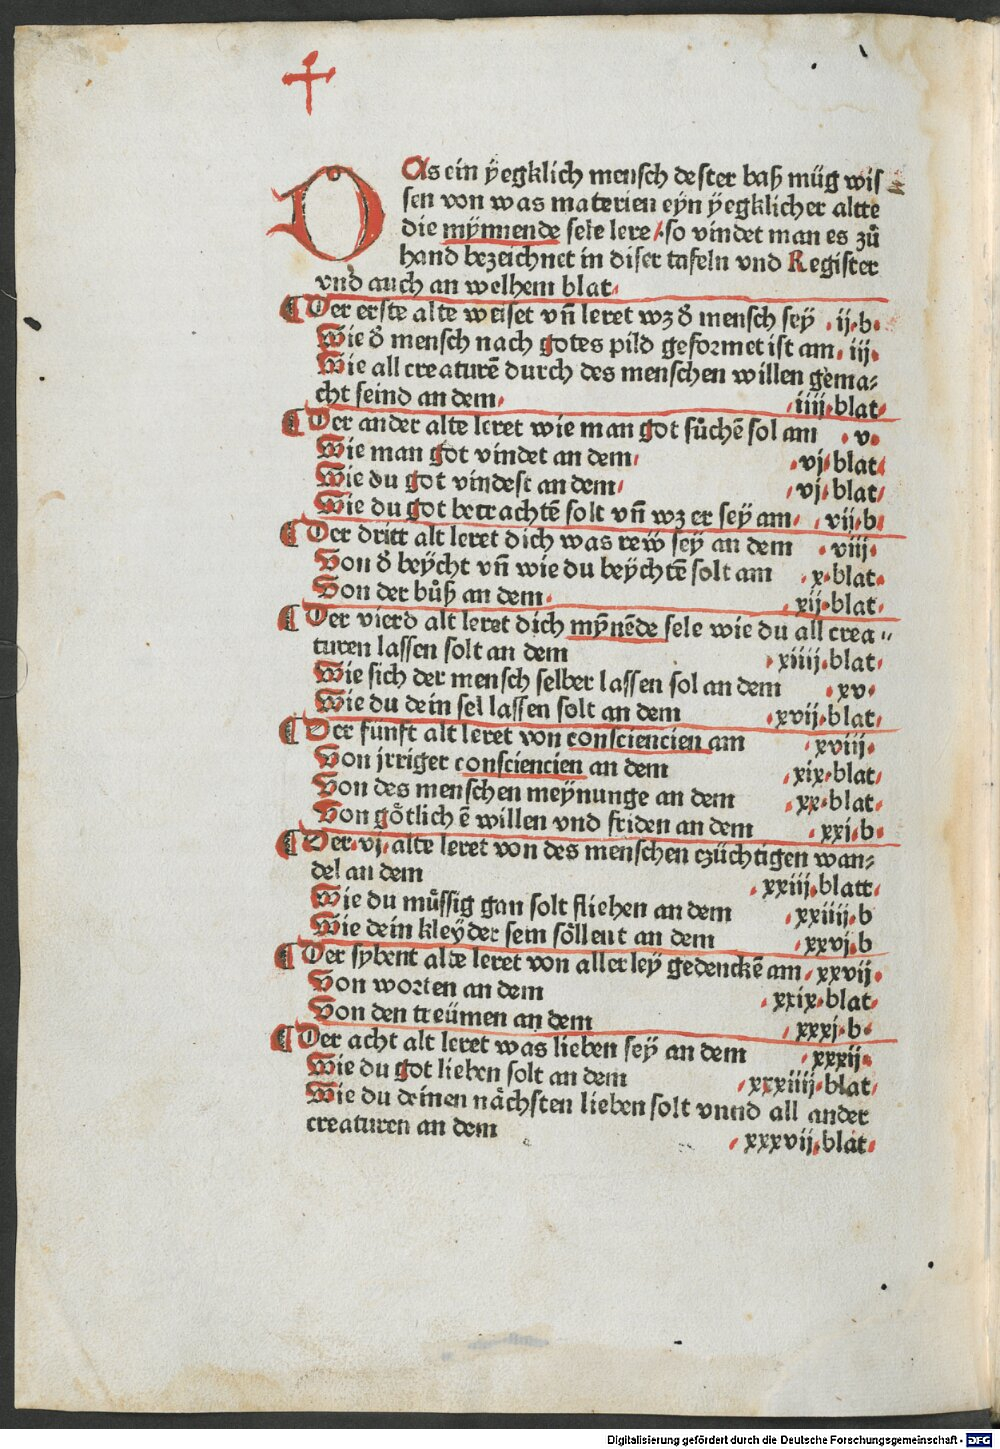 DAs ein ÿegklich mensch dester baß müg wis
sen von was materien eyn ÿegklicher altte
die mynnende sele lere / so vindet man es zů
hand bezeichnet in diser tafeln vnd Register
vnd auch an welhem blat.
¶ Der erste alte weiset vn̄ leret wz d᷑ mensch sey .ij.b.
Wie d᷑ mensch nach gotes pild geformet ist am. iij.
Wie all creaturē durch des menschen willen gema⸗
cht seind an dem. .iiij.blat.
¶ Der ander alte leret wie man got sůchē sol am .v.
Wie man got vindet an dem. .vj.blat.
Wie du got vindest an dem. .vj.blat.
Wie du got betrachtē solt vn̄ wz er seÿ am. .vij.b.
¶ Der dritt alt leret dich was reẅ sey an dem .viij.
Von d᷑ beÿcht vn̄ wie du beÿchtē solt am .x.blat.
Von der bůß an dem. .xij.blat.
¶ Der vierd alt leret dich mÿnēde sele wie du all crea⸗
turen lassen solt an dem .xiiij.blat.
Wie sich der mensch selber lassen sol an dem .xv.
Wie du dein sel lassen solt an dem .xvij.blat.
¶ Der fünft alt leret von consciencien am .xviij.
Von jrriger consciencien an dem .xix.blat.
Von des menschen meÿnunge an dem .xx.blat.
Von goͤtlichē willen vnd friden an dem .xxj.b.
¶ Der.vj.alte leret von des menschen czüchtigen wan⸗
del an dem .xxiij.blatt.
Wie du muͤssig gan solt fliehen an dem .xxiiij.b
Wie dein kleÿder sein soͤllent an dem .xxvj.b
¶ Der sybent alte leret von aller leÿ gedenckē am .xxvij.
Von worten an dem .xxix.blat.
Von den treümen an dem .xxxj.b.
¶ Der acht alt leret was lieben seÿ an dem .xxxij.
Wie du got lieben solt an dem .xxxiiij.blat.
Wie du deinen naͤchsten lieben solt vnnd all ander
creaturen an dem .xxxvij.blat.
Digitalisierung gefördert durch die Deutsche Forschungsgemeinschaft - DFG